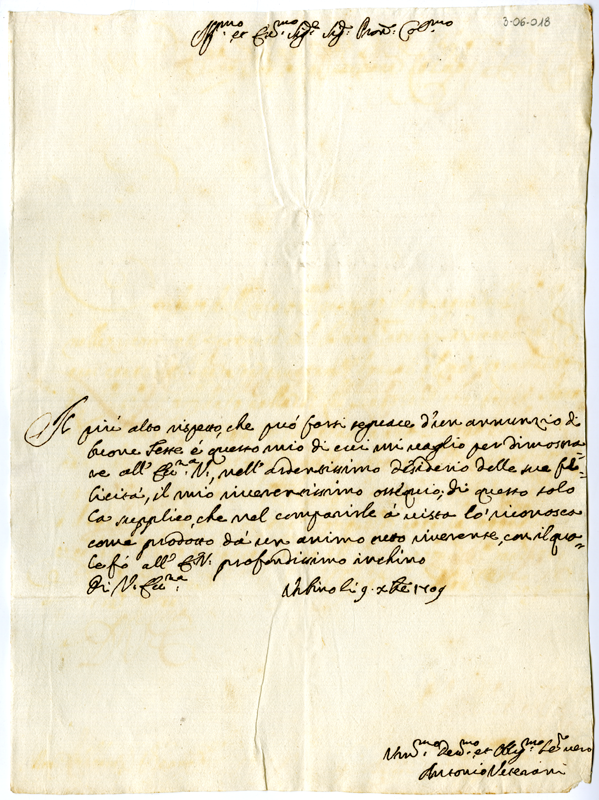 3-06-018
Ill.mo et Ecc.mo Sig.re Sig.r Pron.e Col.mo
Il più alto rispetto, che può farsi seguace d'un annunzio di
buone Feste è questo mio di cui mi vaglio per dimostra=
re all' Ecc.za V.a, nell' ardentissimo desiderio delle sue fe=
licità, il mio riverentissimo ossequio; di questo solo
la supplico, che nel comparirle à vista lo riconosca
come prodotto dà un animo tutto riverente, con il qua=
le fò all' E.V. profondissimo inchino
Di V. Ecc.za
Urbino li 9. Xbre 1709
Um.mo Dev.mo, et Obblig.mo Se.re vero
Antonio Veterani